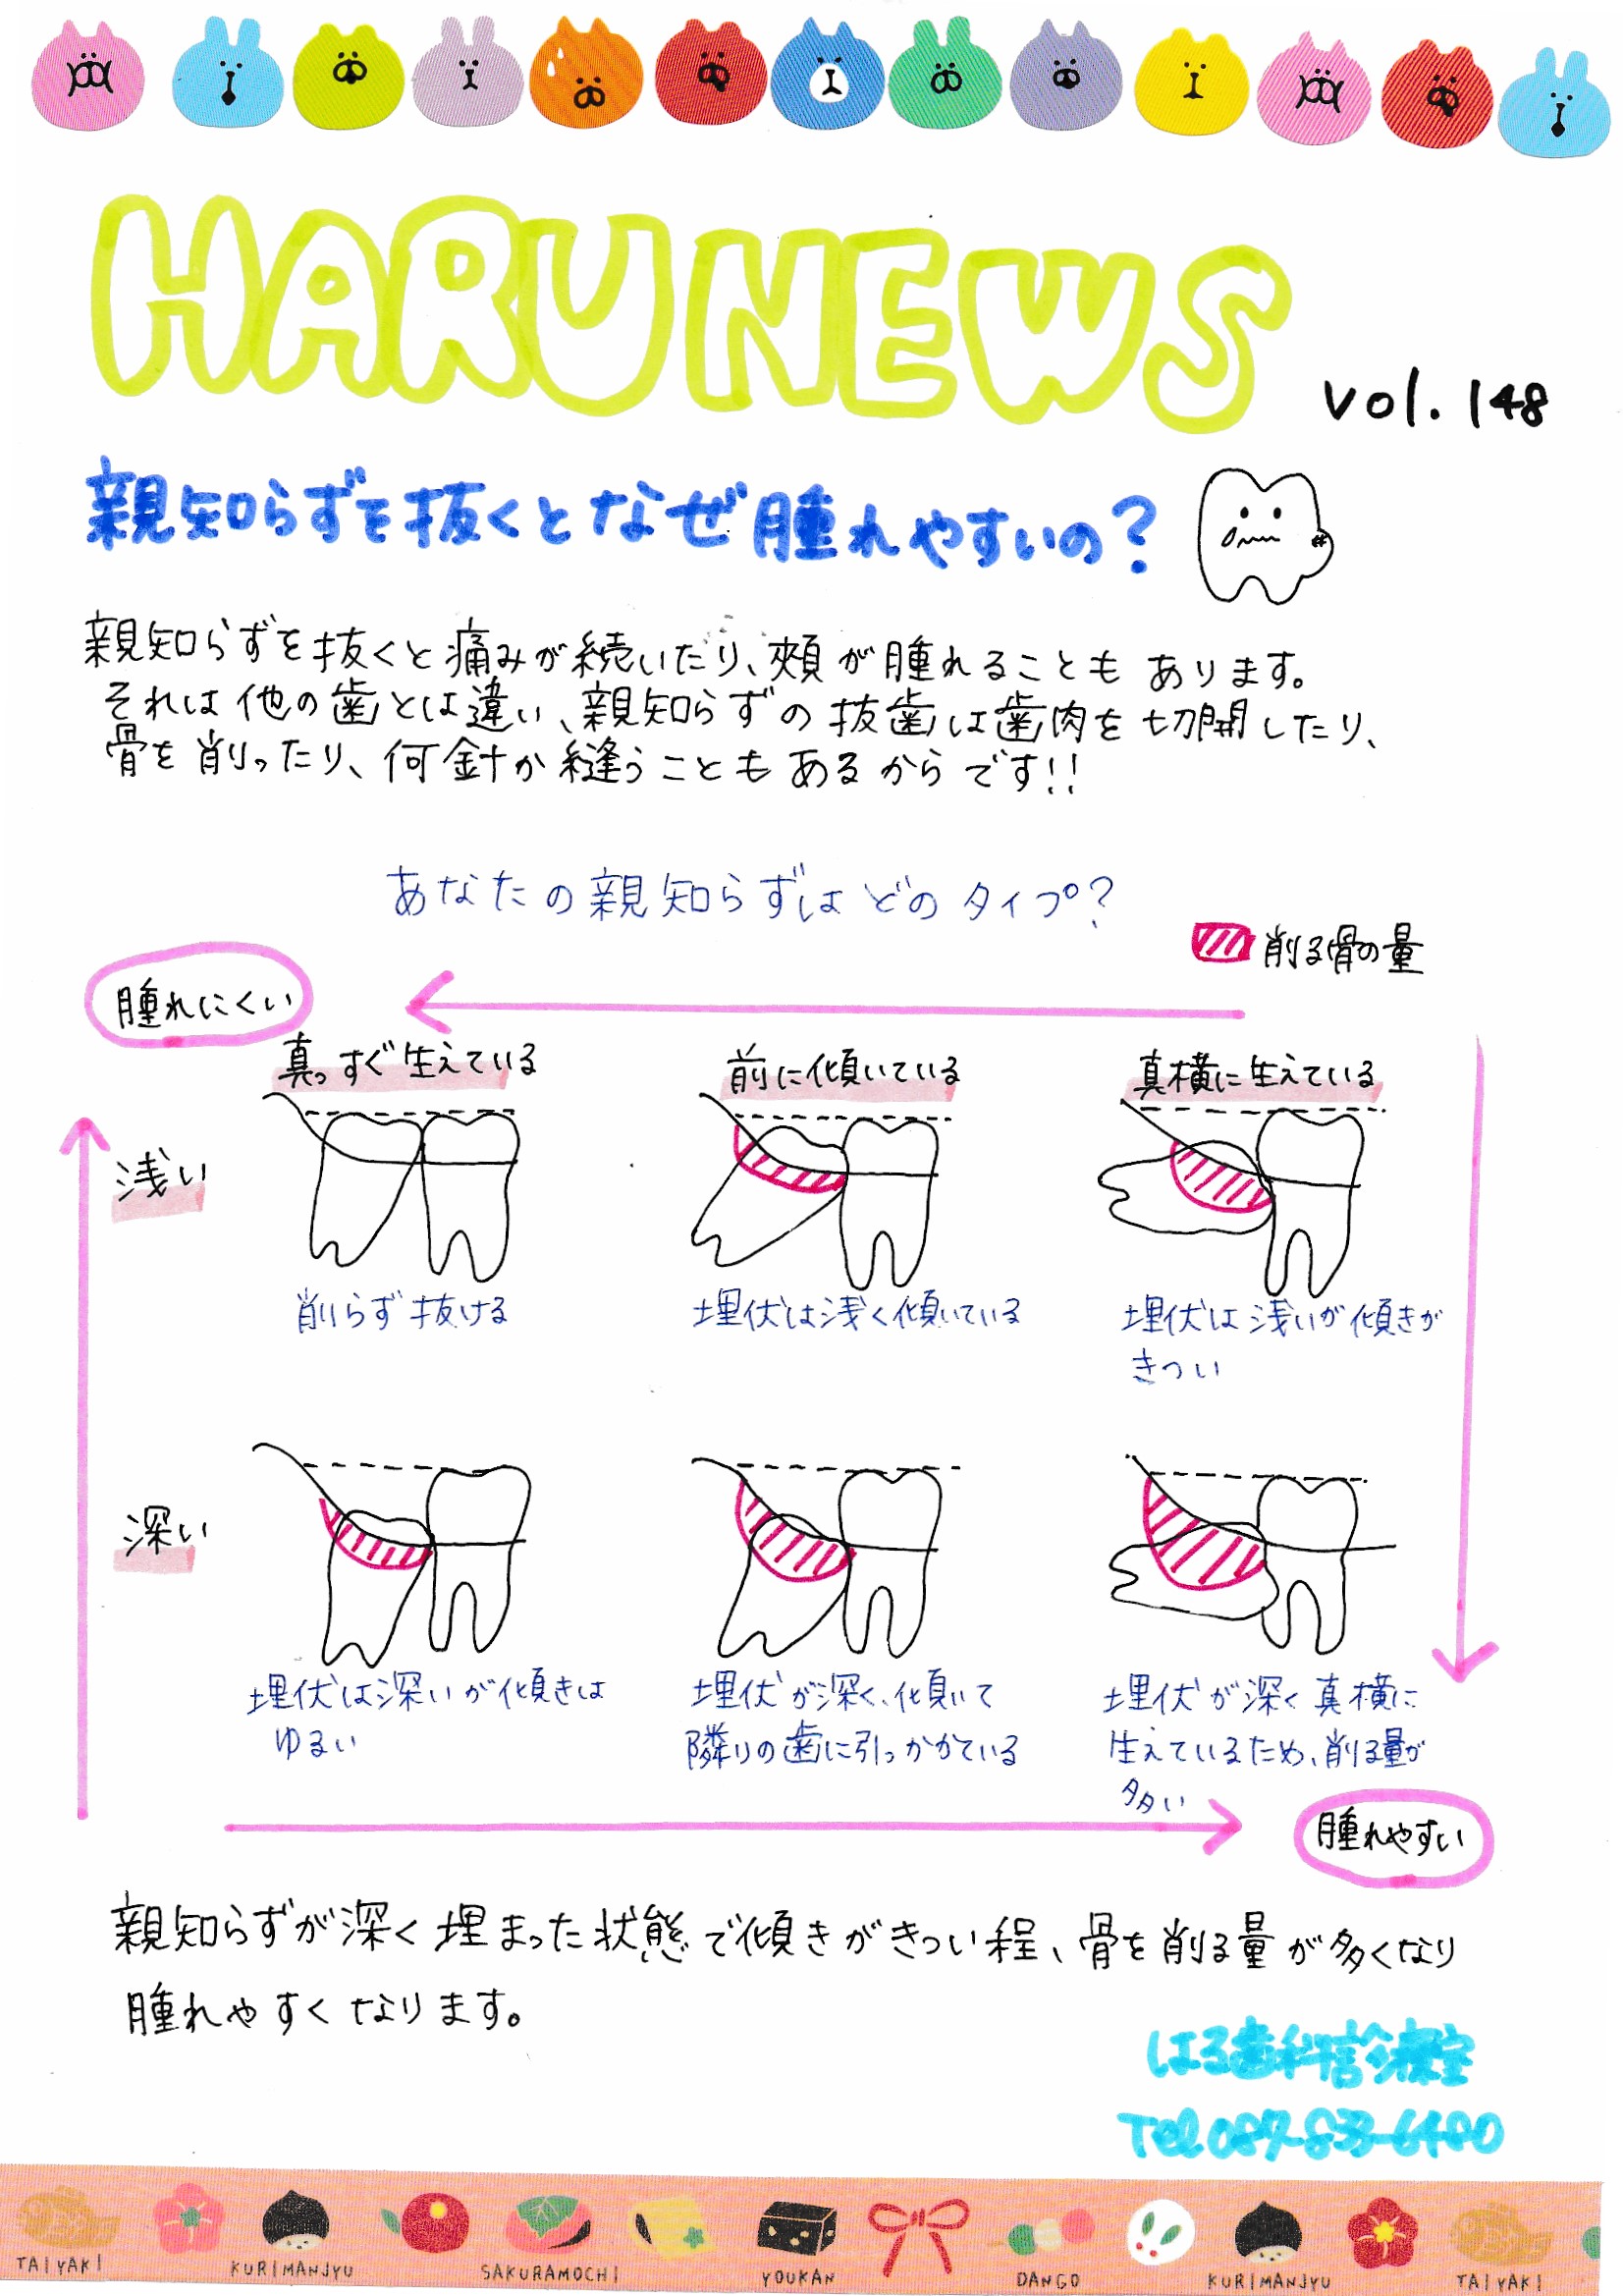 HARU NEWS
vol.148
親知らずを抜くとなぜ腫れやすいの？
親知らずを抜くと痛みが続いたり、頬が腫れることもあります。
それは他の歯とは違い、親知らずの抜歯は歯肉を切開したり、
骨を削ったり、何針か縫うこともあるからです!!
あなたの親知らずはどのタイプ？
削る骨の量
腫れにくい
真っすぐ生えている
前に傾いている
真横に生えている
浅い
削らず抜ける
埋伏は浅く傾いている
埋伏は浅いが傾きが
きつい
深い
埋伏は深いが傾きは
ゆるい
埋伏が深く、傾いて
隣りの歯に引っかかている
埋伏が深く真横に
生えているため、削る量が
多い
腫れやすい
親知らずが深く埋まった状態で傾きがきつい程、骨を削る量が多くなり
腫れやすくなります。
はる歯科診療室
Tel.087-833-6480
TAIYAKI
KURIMANJYU
SAKURAMOCHI
YOUKAN
DANGO
KURIMANJYU
TAIYAKI